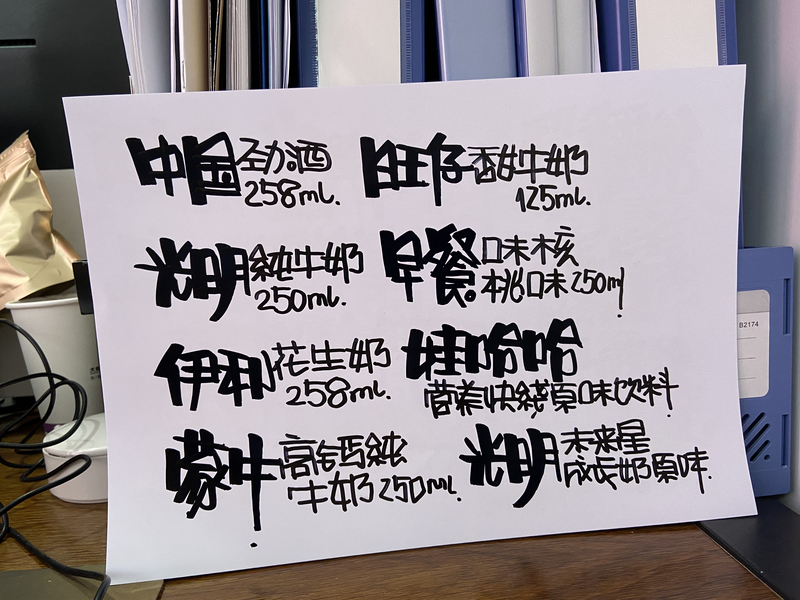 中国劲酒
258ml.
旺仔香甜牛奶
125ml.
光明純牛奶
250ml.
早餐口味核
桃口味250ml
伊利花生奶
258ml.
娃哈哈
营养快綫原味饮料
蒙牛高钙純
牛奶250ml.
光明未来星
成长奶原味.
B2174